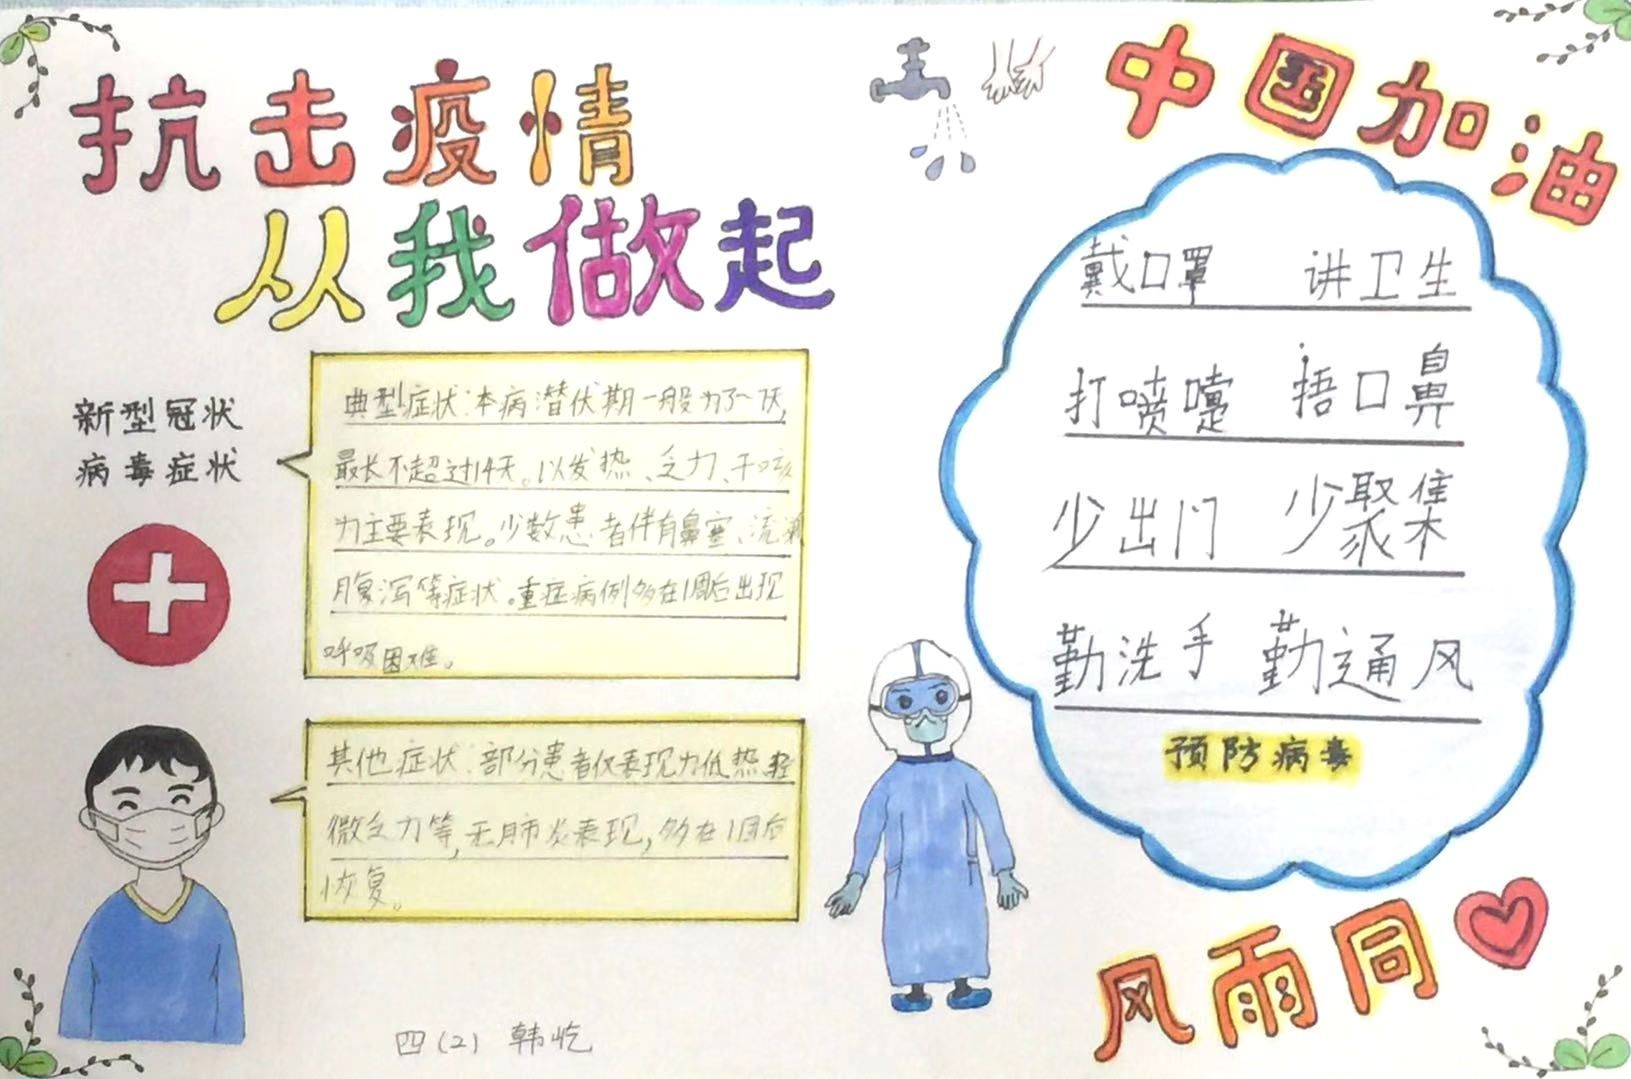 抗击疫情
从我做起
新型冠状
病毒症状
典型症状:本病潜伏期一般为3~7天,
最长不超过14天。以发热、乏力、干咳
为主要表现。少数患者伴有鼻塞、流涕
腹泻等症状。重症病例多在1周后出现
呼吸困难。
其他症状:部分患者仅表现为低热轻
微乏力等,无肺炎表现,多在1周后
恢复。
四(2) 韩屹
中国加油
戴口罩 讲卫生
打喷嚏 捂口鼻
少出门 少聚集
勤洗手 勤通风
预防病毒
风雨同